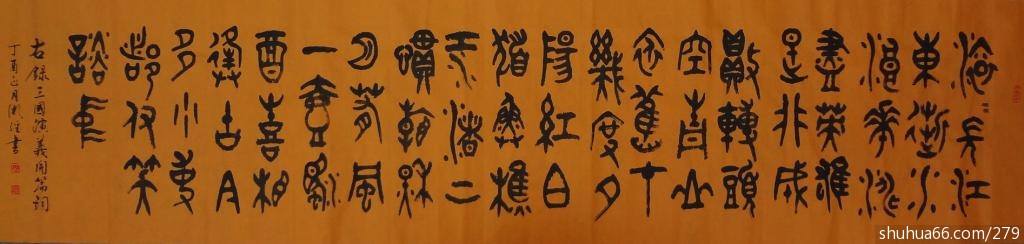 滚〻長江
東逝水
浪花淘
盡英雄
是非成
敗轉頭
空青山
依舊在
幾度夕
陽紅白
髮漁樵
江渚上
慣看秋
月春風
一壺濁
酒喜相
逢古今
多少事
都付笑
談中
右錄三國演義開篇詞
丁酉正月書
shuhua66.com/279